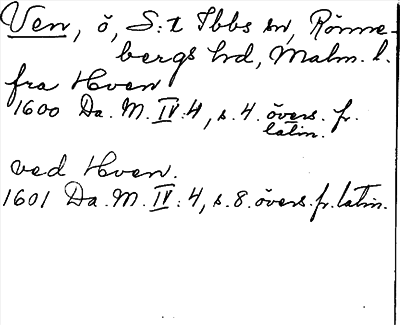 Ven, ö, S:t Ibbs sn, Rönne-
bergs hd, Malm. l.
fra Hven
1600 Da. M. IV:4, s. 4. övers. fr.
latin.
ved Hven.
1601 Da. M. IV:4, s. 8. övers. fr. latin.